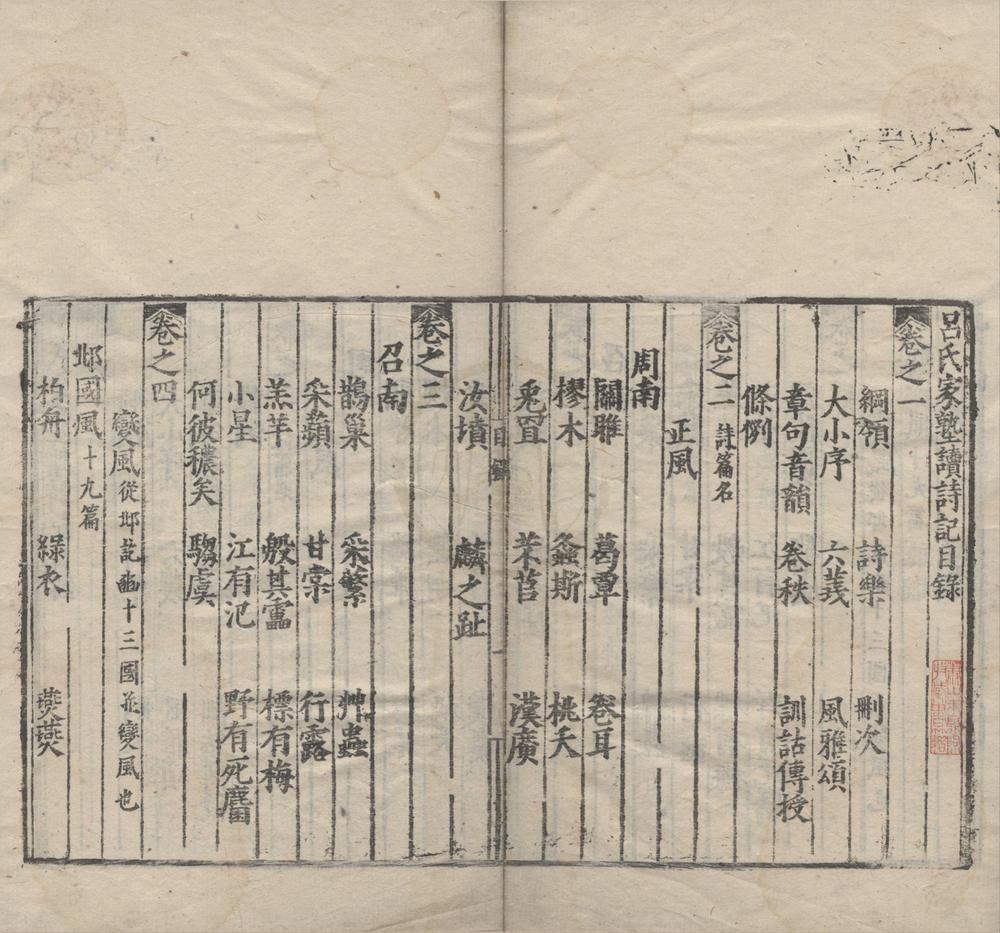 呂氏家塾讀詩記目錄
卷之一
綱領 詩樂 刪次
大小序 六義 風雅頌
章句音韻 卷秩 訓詁傳授
條例
卷之二 詩篇名
正風
周南
關雎 葛覃 卷耳
樛木 螽斯 桃夭
兎罝 芣苢 漢廣
目錄 一
汝墳 麟之趾
卷之三
召南
鵲巢 采蘩 艸蟲
采蘋 甘棠 行露
羔羊 殷其靁 標有梅
小星 江有汜 野有死麕
何彼穠矣 騶虞
卷之四
變風 從邶訖豳十三國並變風也
邶國風 十九篇
柏舟 綠衣 燕燕